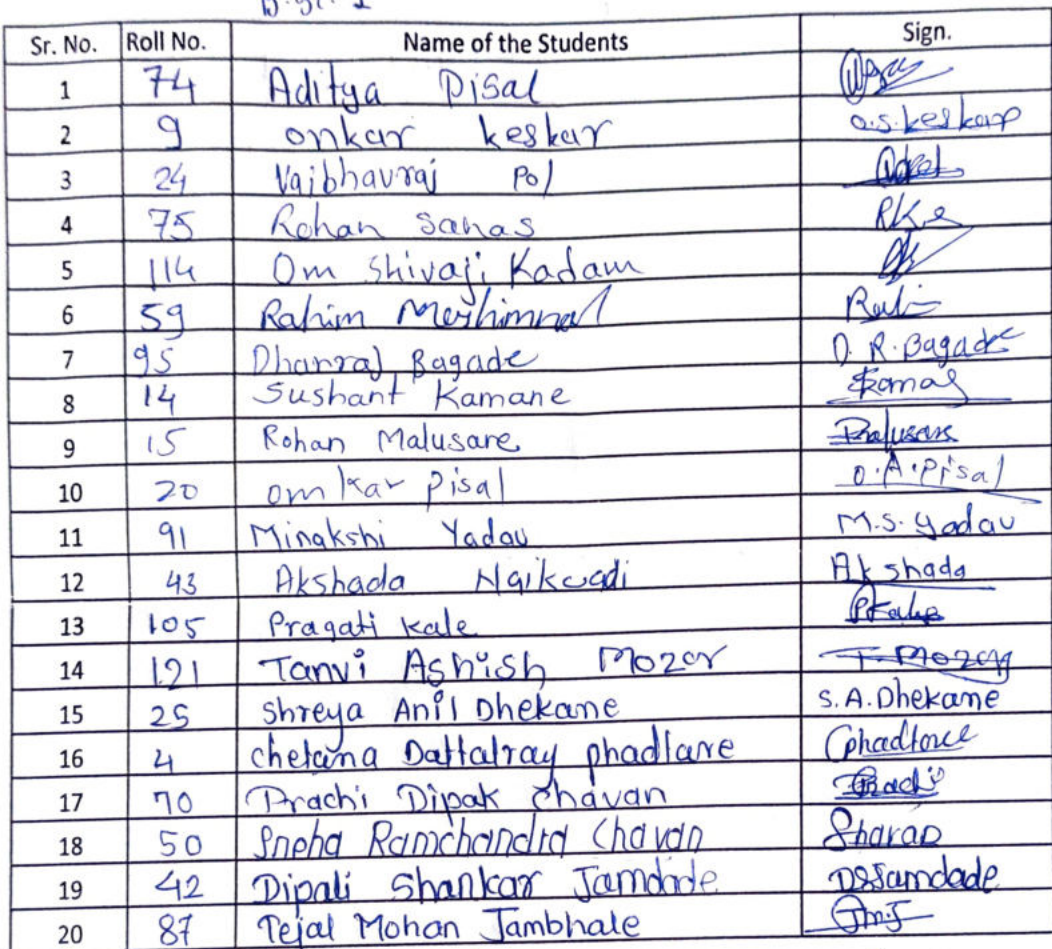 Sr. No. Roll No. Name of the Students Sign.
1 74 Aditya Pisal
2 9 onkar keskar o.s.keskar
3 24 Vaibhavraj Pol
4 75 Rohan Sanas RKS
5 114 Om Shivaji Kadam
6 59 Rahim
7 95 Dhanraj Bagade D. R. Bagade
8 14 Sushant Kamane
9 15 Rohan Malusare Malusare
10 20 omkar pisal O.A.pisal
11 91 Minakshi Yadav M.S. Yadav
12 43 Akshada Naikwadi Akshada
13 105 Pragati kale PKale
14 121 Tanvi Ashish Mozar T. Mozar
15 25 Shreya Anil Dhekane S.A.Dhekane
16 4 chetana Dattatray phadtare Cphadtare
17 70 Prachi Dipak Chavan Prachi
18 50 Sneha Ramchandra Chavan
19 42 Dipali Shankar Jamdade DSJamdade
20 87 Tejal Mohan Jambhale